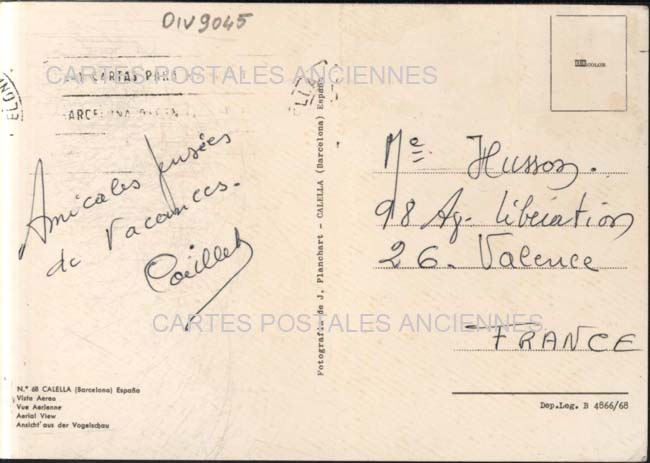 DIV9045
CARTAS PARA
CARTES POSTALES ANCIENNES
BARCELONA
ELONA
COLOR
Amicales pensées
de Vacances.
Caillet
Me Husson.
98 Av. libération
26. Valence
FRANCE
Fotografía de J. Planchart - CALELLA (Barcelona) España
CARTES POSTALES ANCIENNES
N.º 68 CALELLA (Barcelona) España
Vista Aerea
Vue Aerienne
Aerial View
Ansicht aus der Vogelschau
Dep.Leg. B 4866/68